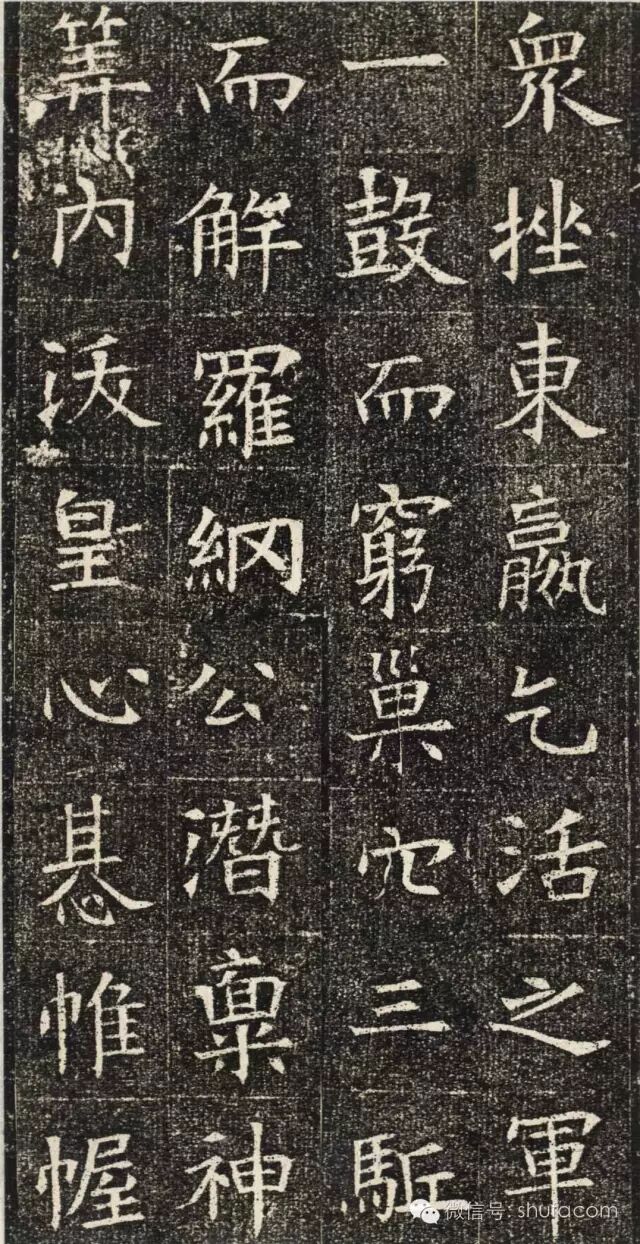 衆挫東嬴乞活之軍
一鼓而窮巢穴三駈
而解羅網公潜稟神
筭内沃皇心惎帷幄
微信号: shufacom